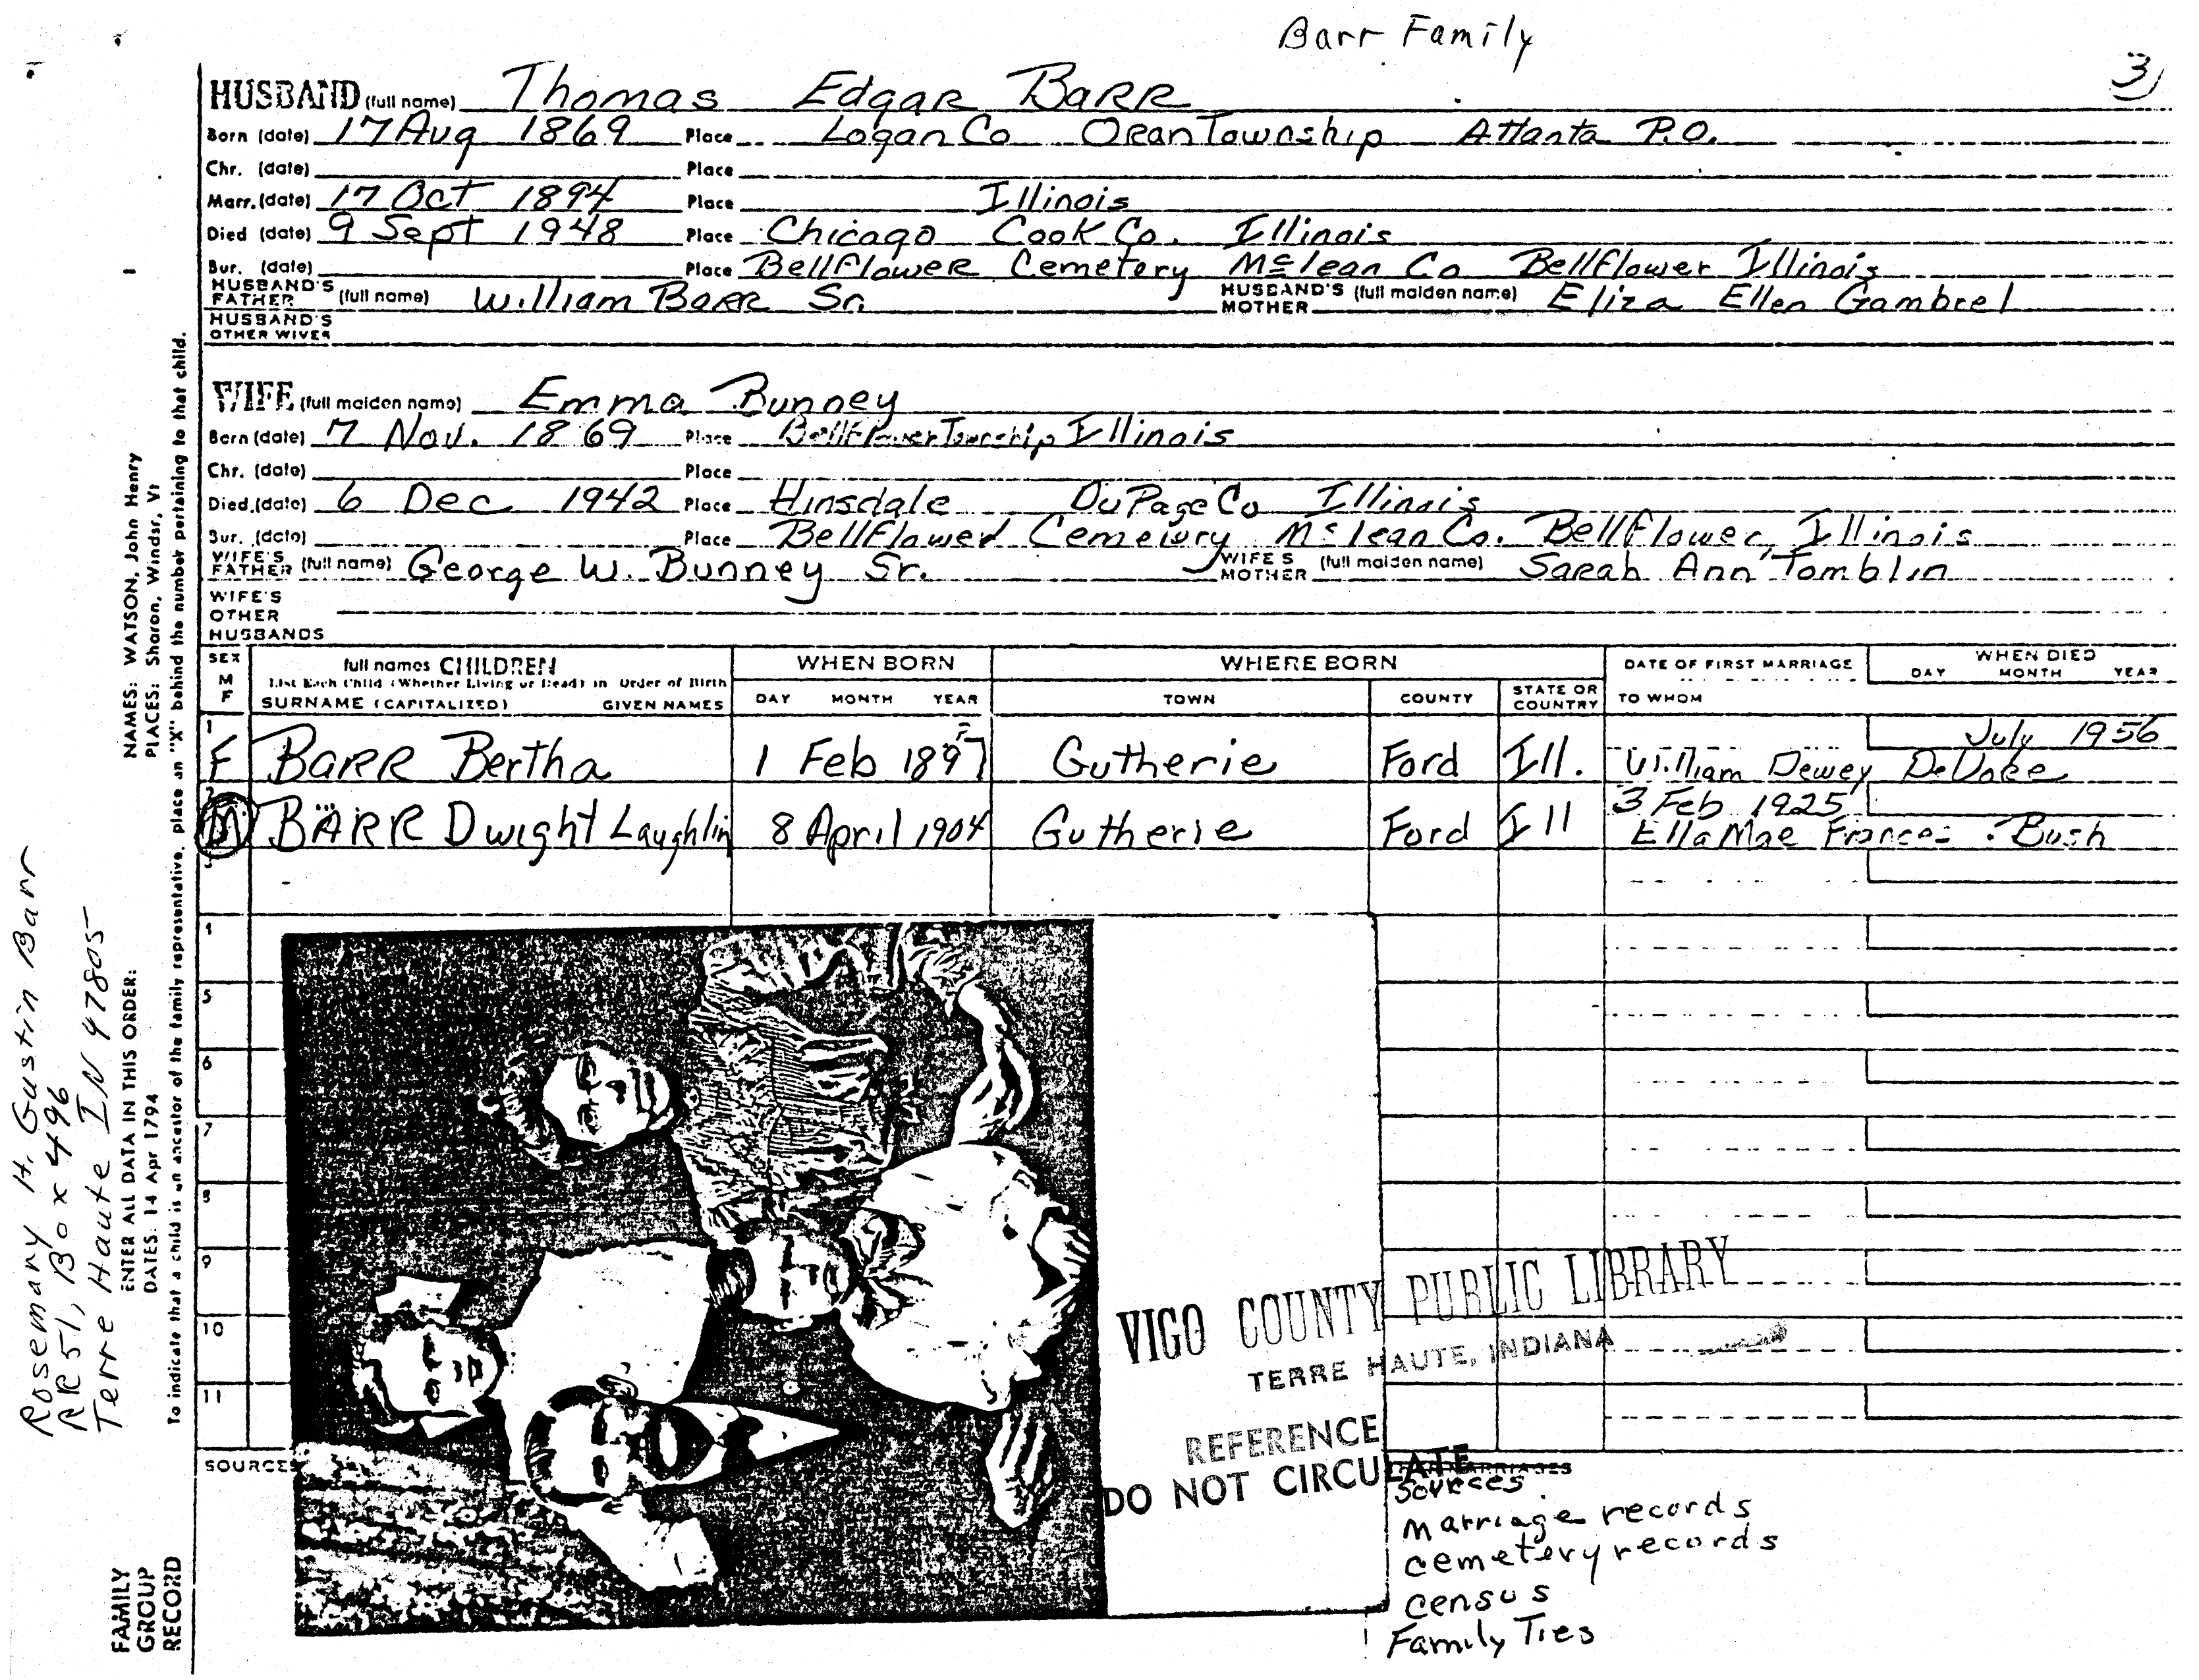 Barr Family
3
HUSBAND (full name) Thomas Edgar BARR
Born (date) 17 Aug 1869 Place Logan Co Oran Township Atlanta P.O.
Chr. (date) Place
Marr. (date) 17 Oct 1894 Place Illinois
Died (date) 9 Sept 1948 Place Chicago Cook Co. Illinois
Bur. (date) Place Bellflower Cemetery McLean Co Bellflower Illinois
HUSBAND'S FATHER (full name) William BARR Sr. HUSBAND'S MOTHER (full maiden name) Eliza Ellen Gambrel
HUSBAND'S OTHER WIVES
WIFE (full maiden name) Emma Bunney
Born (date) 7 Nov. 1869 Place Bellflower Township Illinois
Chr. (date) Place
Died (date) 6 Dec 1942 Place Hinsdale DuPage Co Illinois
Bur. (date) Place Bellflower Cemetery McLean Co. Bellflower, Illinois
WIFE'S FATHER (full name) George W. Bunney Sr. WIFE'S MOTHER (full maiden name) Sarah Ann Tomblin
WIFE'S OTHER HUSBANDS
SEX M F
full names CHILDREN
List Each Child (Whether Living or Dead) in Order of Birth
SURNAME (CAPITALIZED) GIVEN NAMES
WHEN BORN
DAY MONTH YEAR
WHERE BORN
TOWN COUNTY STATE OR COUNTRY
DATE OF FIRST MARRIAGE
TO WHOM
WHEN DIED
DAY MONTH YEAR
1 F BARR Bertha 1 Feb 1897 Gutherie Ford Ill. William Dewey DeVore July 1956
2 M BARR Dwight Laughlin 8 April 1904 Gutherie Ford Ill 3 Feb 1925
Ella Mae Frances Bush
3
4
5
6
7
8
9
10
11
SOURCES
VIGO COUNTY PUBLIC LIBRARY
TERRE HAUTE, INDIANA
REFERENCE
DO NOT CIRCULATE
MARRIAGES
Sources
Marriage records
cemetery records
census
Family Ties
Rosemary H. Gustin Barr
RR51, Box 496
Terre Haute IN 47805
FAMILY
GROUP
RECORD
ENTER ALL DATA IN THIS ORDER:
DATES: 14 Apr 1794
NAMES: WATSON, John Henry
PLACES: Sharon, Windsr, Vt
To indicate that a child is an ancestor of the family representative, place an "X" behind the number pertaining to that child.